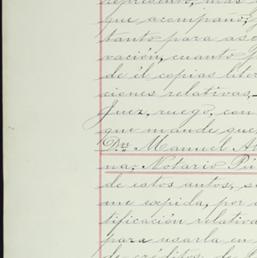 represento, mas
que acompaño,
tanto para ase
vación, cuanto p
de él copias liter
ciones relativas.
Juez, ruego, con
que mande que,
Dn. Manuel A
na, Notario Pú
de estos autos, s
me expida, por
tificación relativa
para usarla en
de créditos, de